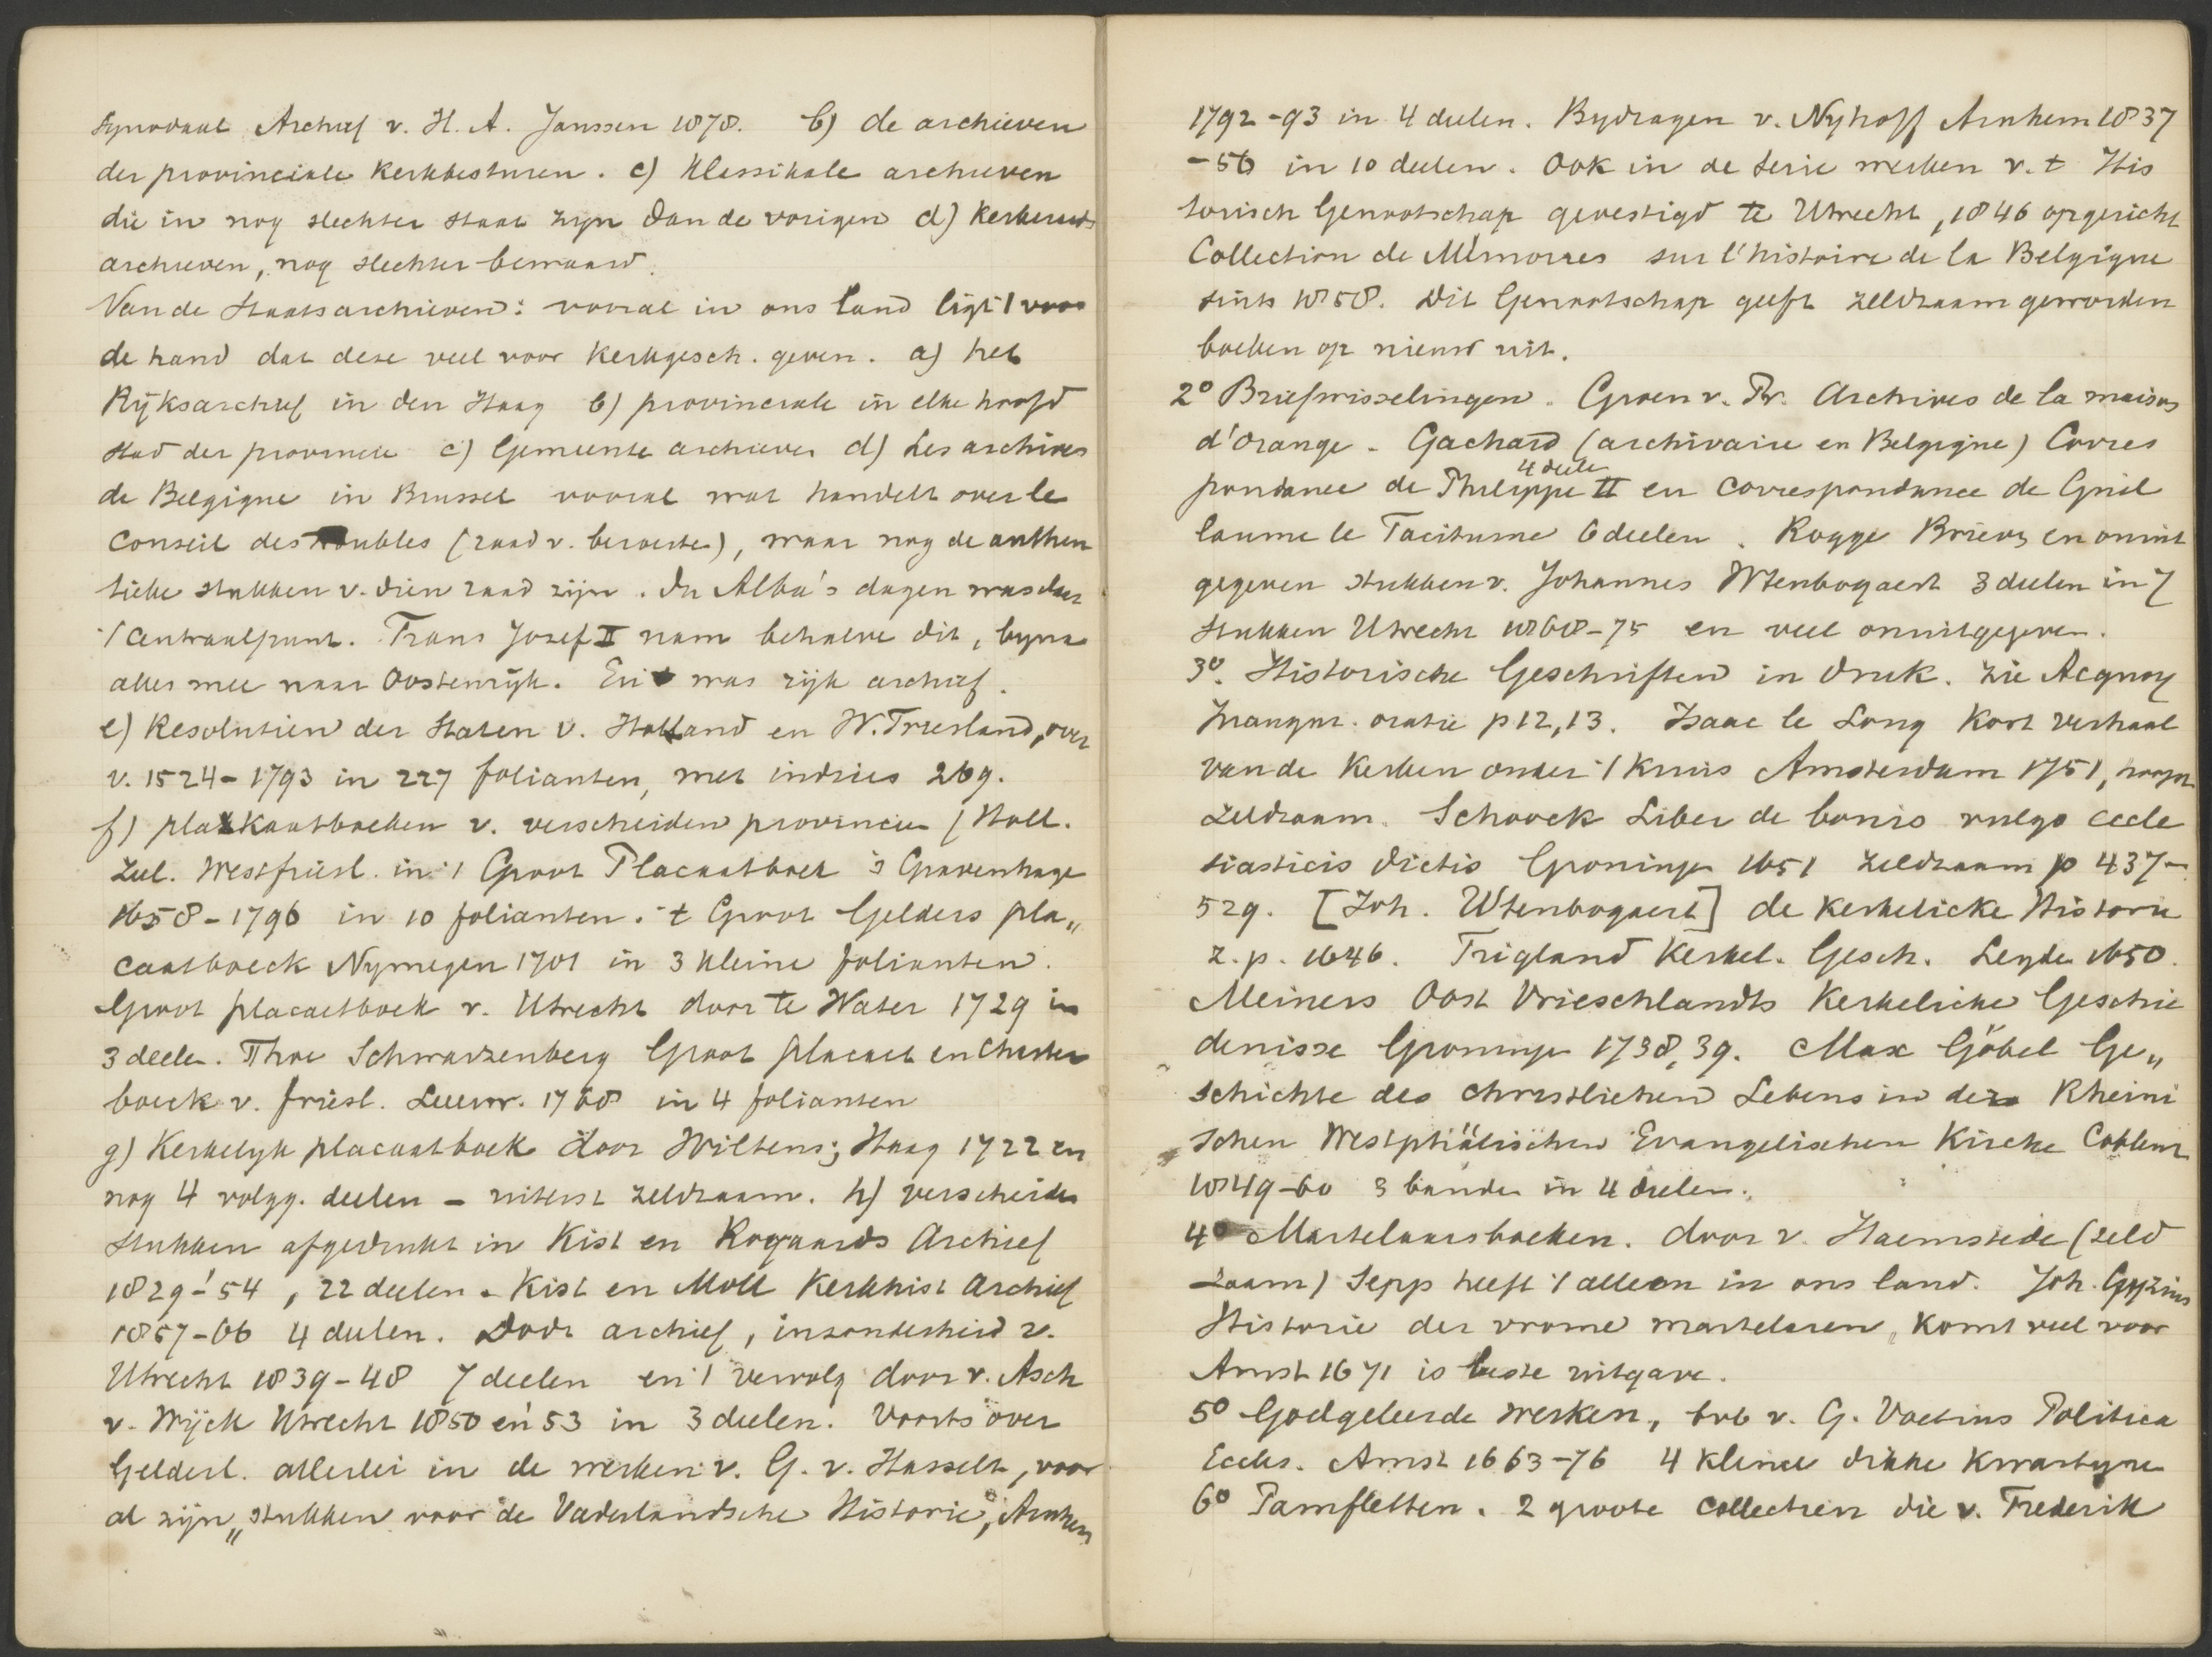 Synodaal Archief v. H. A. Janssen 1878. b) de archieven
der provinciale kerkbesturen. c) Klassikale archieven
die in nog slechter staat zijn dan de vorigen d) kerkeraads
archieven, nog slechter bewaard.
Van de Staatsarchieven: vooral in ons land ligt 't voor
de hand dat deze veel voor kerkgesch. geven. a) het
Rijksarchief in den Haag b) provinciale in elke hoofd
stad der provincie c) Gemeente archieven d) Les archives
de Belgique in Brussel vooral wat handelt over le
Conseil des Troubles (raad v. beroerte), waar nog de authen
tieke stukken v. dien raad zijn. In Alba's dagen was daar
't centraalpunt. Frans Jozef II nam behalve dit, byna
alles mee naar Oostenrijk. Er was rijk archief.
e) Resolutien der Staten v. Holland en W. Friesland, over
v. 1524-1793 in 277 folianten, met indries 269.
f) plakkaatboeken v. verscheiden provincien (Holl.
Zeel. Westfriesl. in 't Groot Placaatboek 's Gravenhage
1658-1796 in 10 folianten. 't Groot Gelders pla„
caatboeck Nymegen 1701 in 3 kleine folianten.
Groot placaetboek v. Utrecht door te Water 1729 in
3 deelen. Thoe Schwarzenberg Groot placaet en Charter
boeck v. friesl. Leeuw. 1768 in 4 folianten
g) Kerkelyk placaatboek door Wiltens; Haag 1722 en
nog 4 volgg. deelen - uiterst zeldzaam. h) verscheiden
stukken afgedrukt in Kist en Royaards Archief
1829-'54, 22 deelen. Kist en Moll Kerkhist Archief
1857-66 4 deelen. Dodt archief, inzonderheid v.
Utrecht 1839-48 7 deelen en 't vervolg door v. Asch
v. Wijck Utrecht 1850 en '53 in 3 deelen. Voorts over
Gelderl. allerlei in de werken v. G. v. Hasselt, voor
al zijn „stukken voor de Vaderlandsche Historie", Arnhem
1792-93 in 4 deelen. Bydragen v. Nyhoff Arnhem 1837
-56 in 10 deelen. Ook in de serie werken v. t His
torisch Genootschap gevestigd te Utrecht, 1846 opgericht
Collection de Mémoires sur l'histoire de la Belgique
sints 1858. Dit Genootschap geeft zeldzaam geworden
boeken op nieuw uit.
2° Briefwisselingen. Groen v. Pr. Archives de la maison
d'Orange. Gachard (archivaire en Belgique) Corres
pondance de Philippe II 4 deele en Correspondance de Guil
laume le Taciturne 6 deelen. Rogge Brieven en onuit
gegeven stukken v. Johannes Wtenbogaert 3 deelen in 7
stukken Utrecht 1868-75 en veel onuitgegeven.
3°. Historische Geschriften in druk. zie Acquoy
Inaugur. oratie p 12, 13. Isaac le Long Kort verhaal
van de Kerken onder 't kruis Amsterdam 1751, hoogst
zeldzaam. Schoock Liber de bonis vulgo eccle
siasticis dictis Groninge 1651 zeldzaam p 437-
529. [Joh. Wtenbogaert] de kerkelicke Historie
z. p. 1646. Trigland Kerkel. Gesch. Leyden 1650.
Meiners Oost Vrieschlandts Kerkelicke Geschie
denisse Groninge 1738, 39. Max Göbel Ge„
schichte des christlichen Lebens in der Rheini
schen Westphälischen Evangelischen Kirche Coblenz
1849-60 3 bande in 4 deelen.
4° Martelaarsboeken. door v. Haemstede (zeld
zaam) Sepp heeft 't alleen in ons land. Joh. Gyzius
Historie der vrome martelaren, komt veel voor
Amst 1671 is beste uitgave.
5° Godgeleerde werken, bvb v. G. Voetius Politica
Eccles. Amst 1663-76 4 kleine dikke kwartyne
6° Pamfletten. 2 groote collectien die v. Frederik